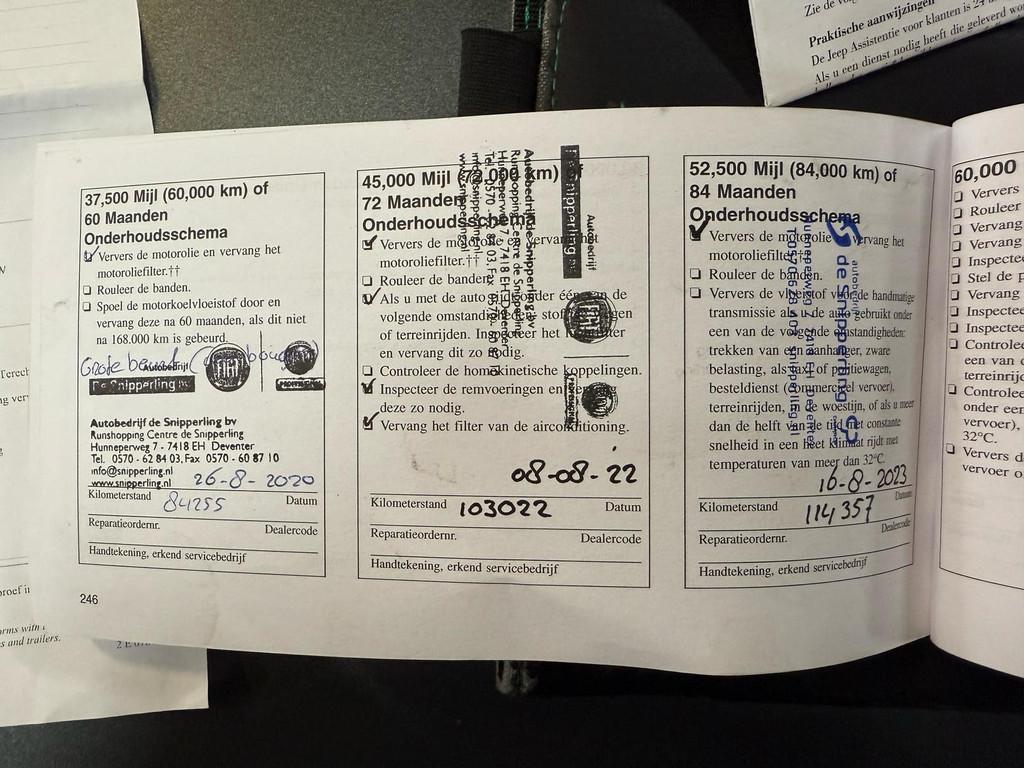 Zie de
Praktische aanwijzingen
De Jeep Assistentie voor klanten is 24
Als u een dienst nodig heeft die geleverd
37,500 Mijl (60,000 km) of
60 Maanden
Onderhoudsschema
Ververs de motorolie en vervang het
motoroliefilter.††
Rouleer de banden.
Spoel de motorkoelvloeistof door en
vervang deze na 60 maanden, als dit niet
na 168.000 km is gebeurd.
Grote
Autobedrijf
De Snipperling
FIAT
Autobedrijf de Snipperling bv
Runshopping Centre de Snipperling
Hunneperweg 7 - 7418 EH Deventer
Tel. 0570 - 62 84 03, Fax 0570 - 60 87 10
info@snipperling.nl
www.snipperling.nl
26-8-2020
Kilometerstand 84255 Datum
Reparatieordernr. Dealercode
Handtekening, erkend servicebedrijf
246
45,000 Mijl (72,000 km) of
72 Maanden
Onderhoudsschema
Ververs de motorolie en vervang het
motoroliefilter.††
Rouleer de banden.
Als u met de auto rijdt onder één van de
volgende omstandigheden: stof
of terreinrijden. Inspecteer het
en vervang dit zo nodig.
Controleer de homokinetische koppelingen.
Inspecteer de remvoeringen en
deze zo nodig.
Vervang het filter van de airconditioning.
Autobedrijf de Snipperling bv
Runshopping Centre de Snipperling
Hunneperweg 7 7418 EH Deventer
info@snipperling.nl
www.snipperling.nl
Autobedrijf
De Snipperling
FIAT
08-08-22
Kilometerstand 103022 Datum
Reparatieordernr. Dealercode
Handtekening, erkend servicebedrijf
52,500 Mijl (84,000 km) of
84 Maanden
Onderhoudsschema
Ververs de motorolie en vervang het
motoroliefilter.††
Rouleer de banden.
Ververs de vloeistof voor de handmatige
transmissie als u de auto gebruikt onder
een van de volgende omstandigheden:
trekken van een aanhanger, zware
belasting, als taxi of politiewagen,
besteldienst (commercieel vervoer),
terreinrijden, in de woestijn, of als u meer
dan de helft van de tijd met constante
snelheid in een heet klimaat rijdt met
temperaturen van meer dan 32°C.
autobedrijf
de Snipperling
Hunneperweg 7 7418 EH Deventer
16-8-2023
Kilometerstand 114357 Datum
Reparatieordernr. Dealercode
Handtekening, erkend servicebedrijf
60,000
Ververs
Rouleer
Vervang
Vervang
Inspectee
Stel de p
Vervang
Inspectee
Inspectee
Controlee
een van d
terreinrijd
Controlee
onder een
vervoer),
32°C.
Ververs d
vervoer o
Terech
roef in
rms with
s and trailers.